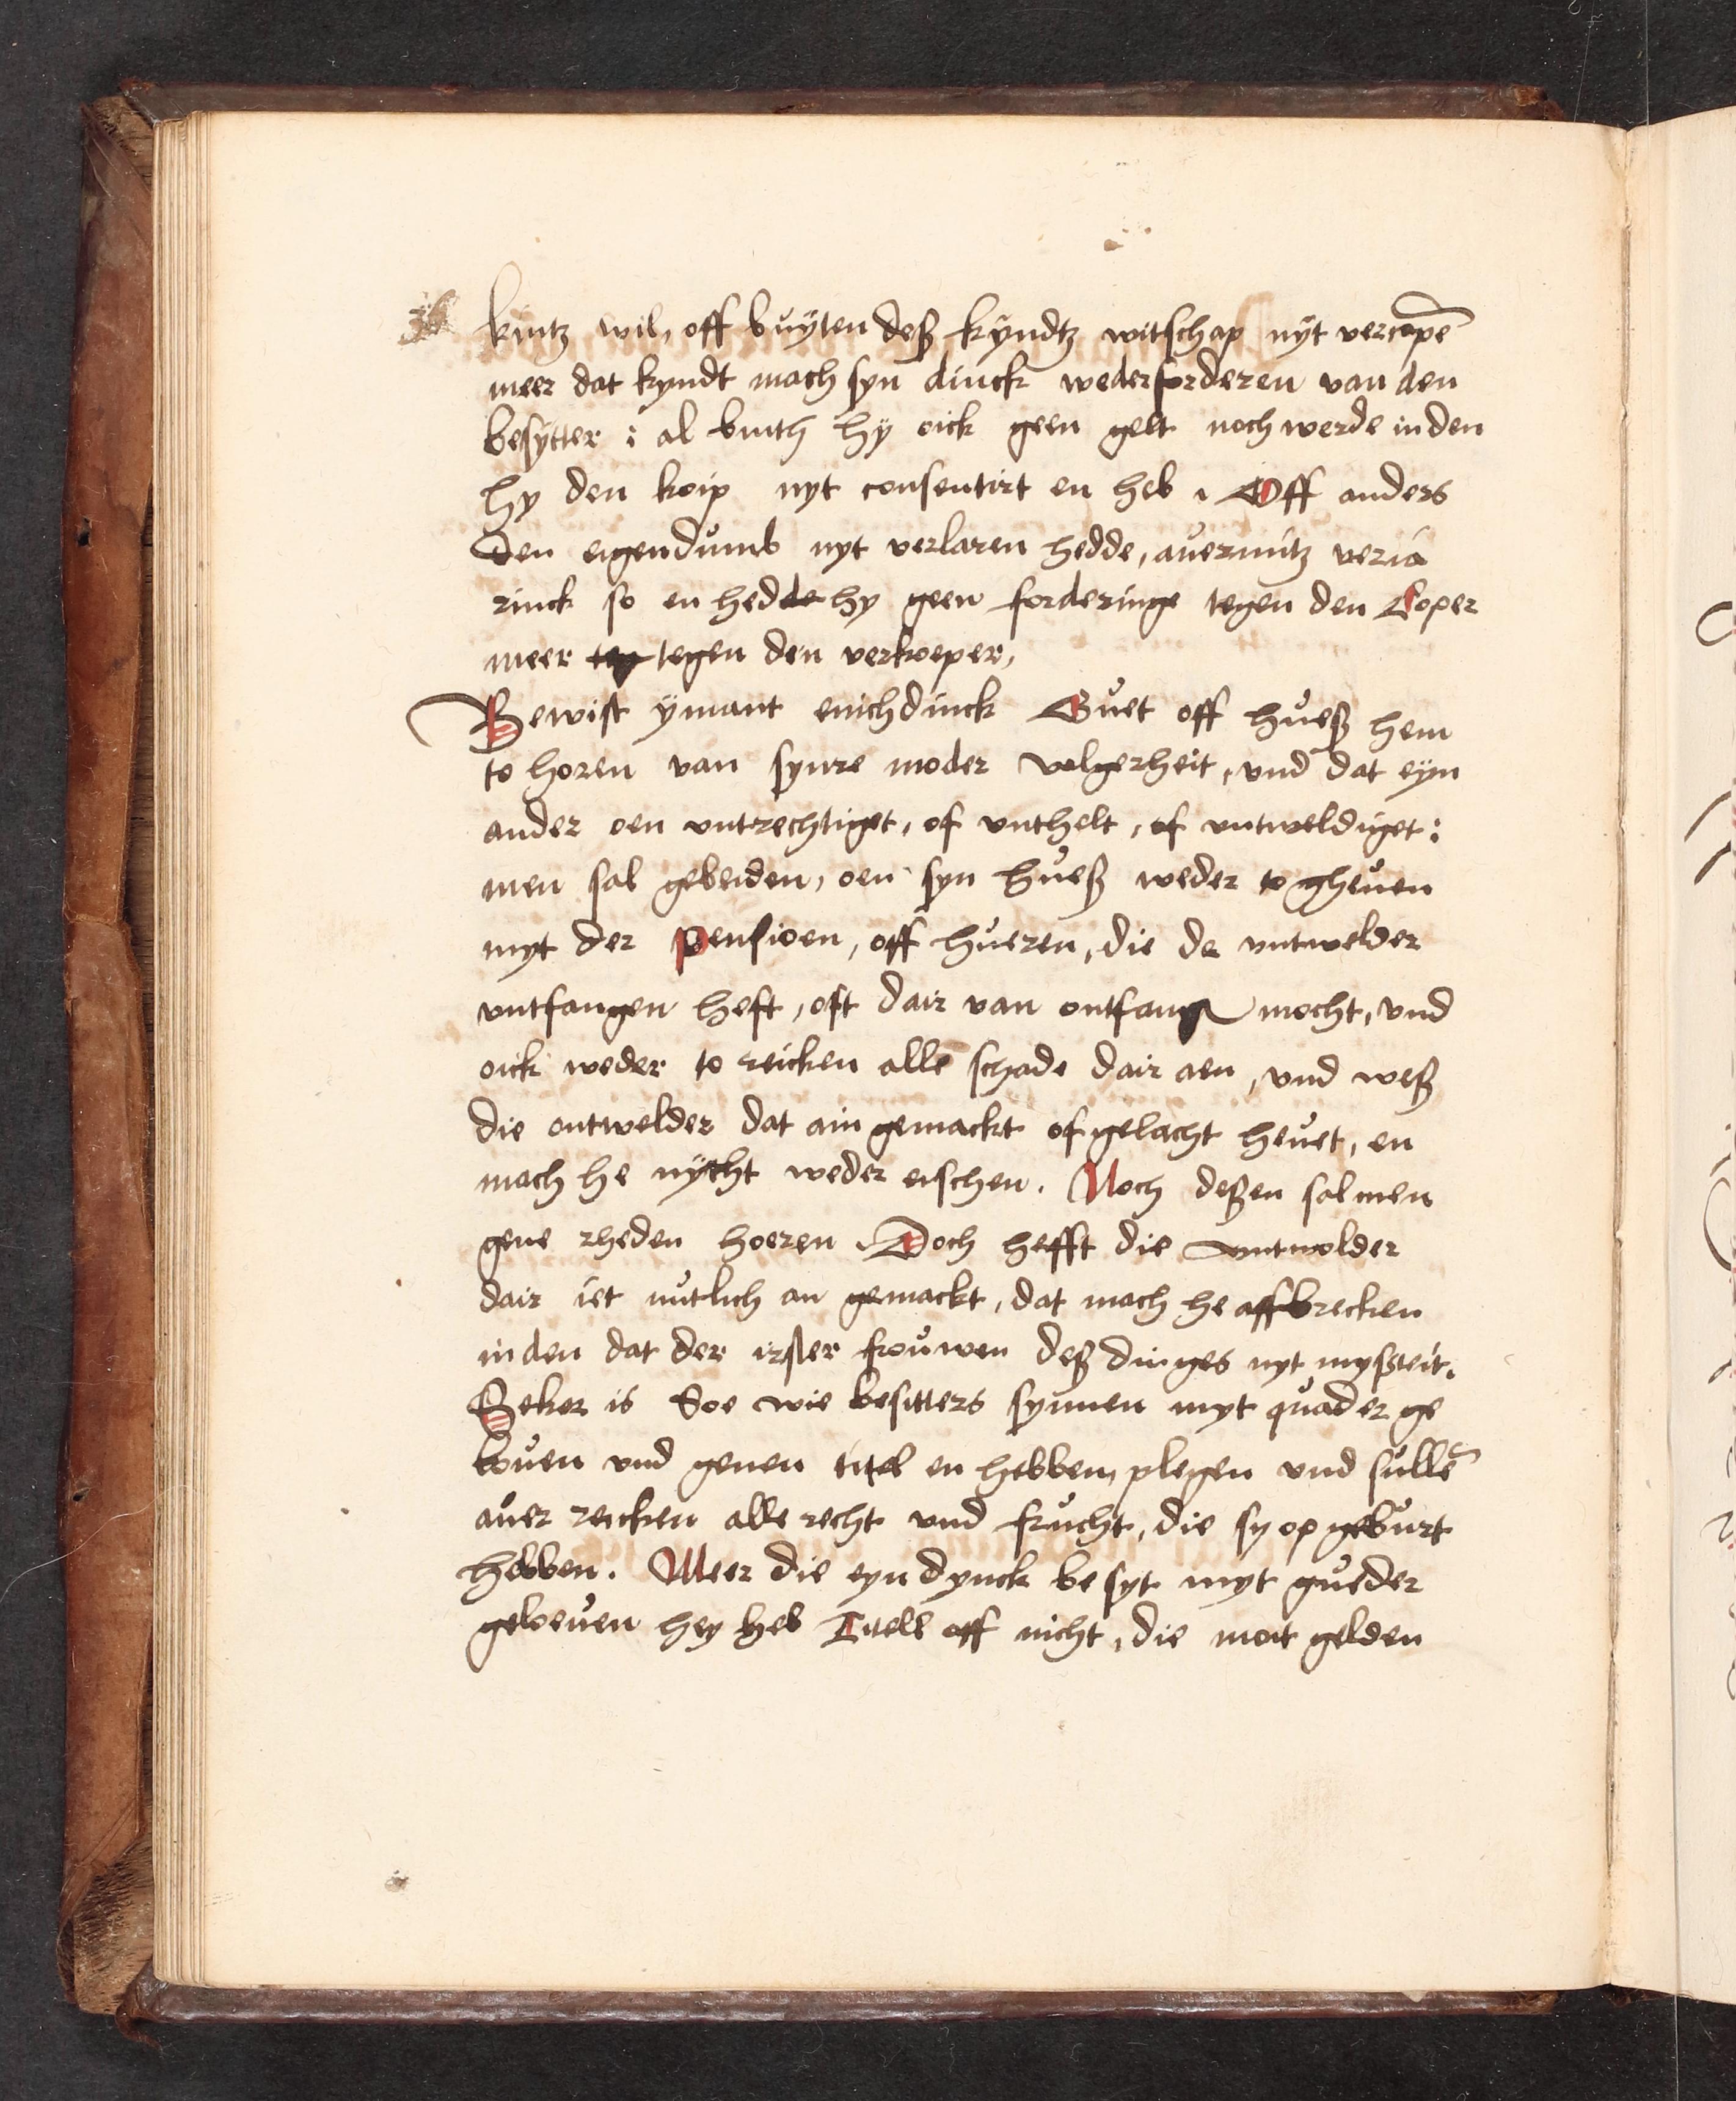 kintz wil, off buÿten deß kÿndtz witschap nÿt vercopē
meer dat kyndt mach syn dinck wederforderen van den
besÿtter : al buith hÿ oick geen gelt noch werde in den
hy den koip nyt consentirt en heb , Off anders
den eigendumb nyt verlaren hedde, auermitz veria
rinck so en hedde hy geen forderinge tegen den Coper
meer tegen den verkoeper,
Bewist ÿmant enichdinck Guet off hueß hem
to horen van synre moder volgerheit, vnd dat eÿn
ander oen vntrechtiget, of vnthelt, of vntweldiget :
men sal gebeiden, oen syn hueß weder to gheuen
myt der Pensioen, off hueren, die de vntwelder
vntfangen heft, oft dair van ontfang mocht, vnd
oick weder to reicken alle schade dair aen, vnd weß
die ontwelder dat ain gemackt of gelacht heuet, en
mach he nÿcht weder eischen. Noch deßen sal men
gene rheden hoeren. Doch hefft die vntwolder
dair iet nutlich an gemackt, dat mach he affbrecken
in den dat der irster frouwen deß dinges nyt myßteit.
Seker is Soe wie besitters synnen myt quader ge
louen vnd genen titel en hebben, plegen vnd sullē
auer reicken alle recht vnd frucht, die sy op geburt
hebben. Meer die eyn dynck besyt myt gueder
geloeuen hey heb Titell off nicht, die moit gelden